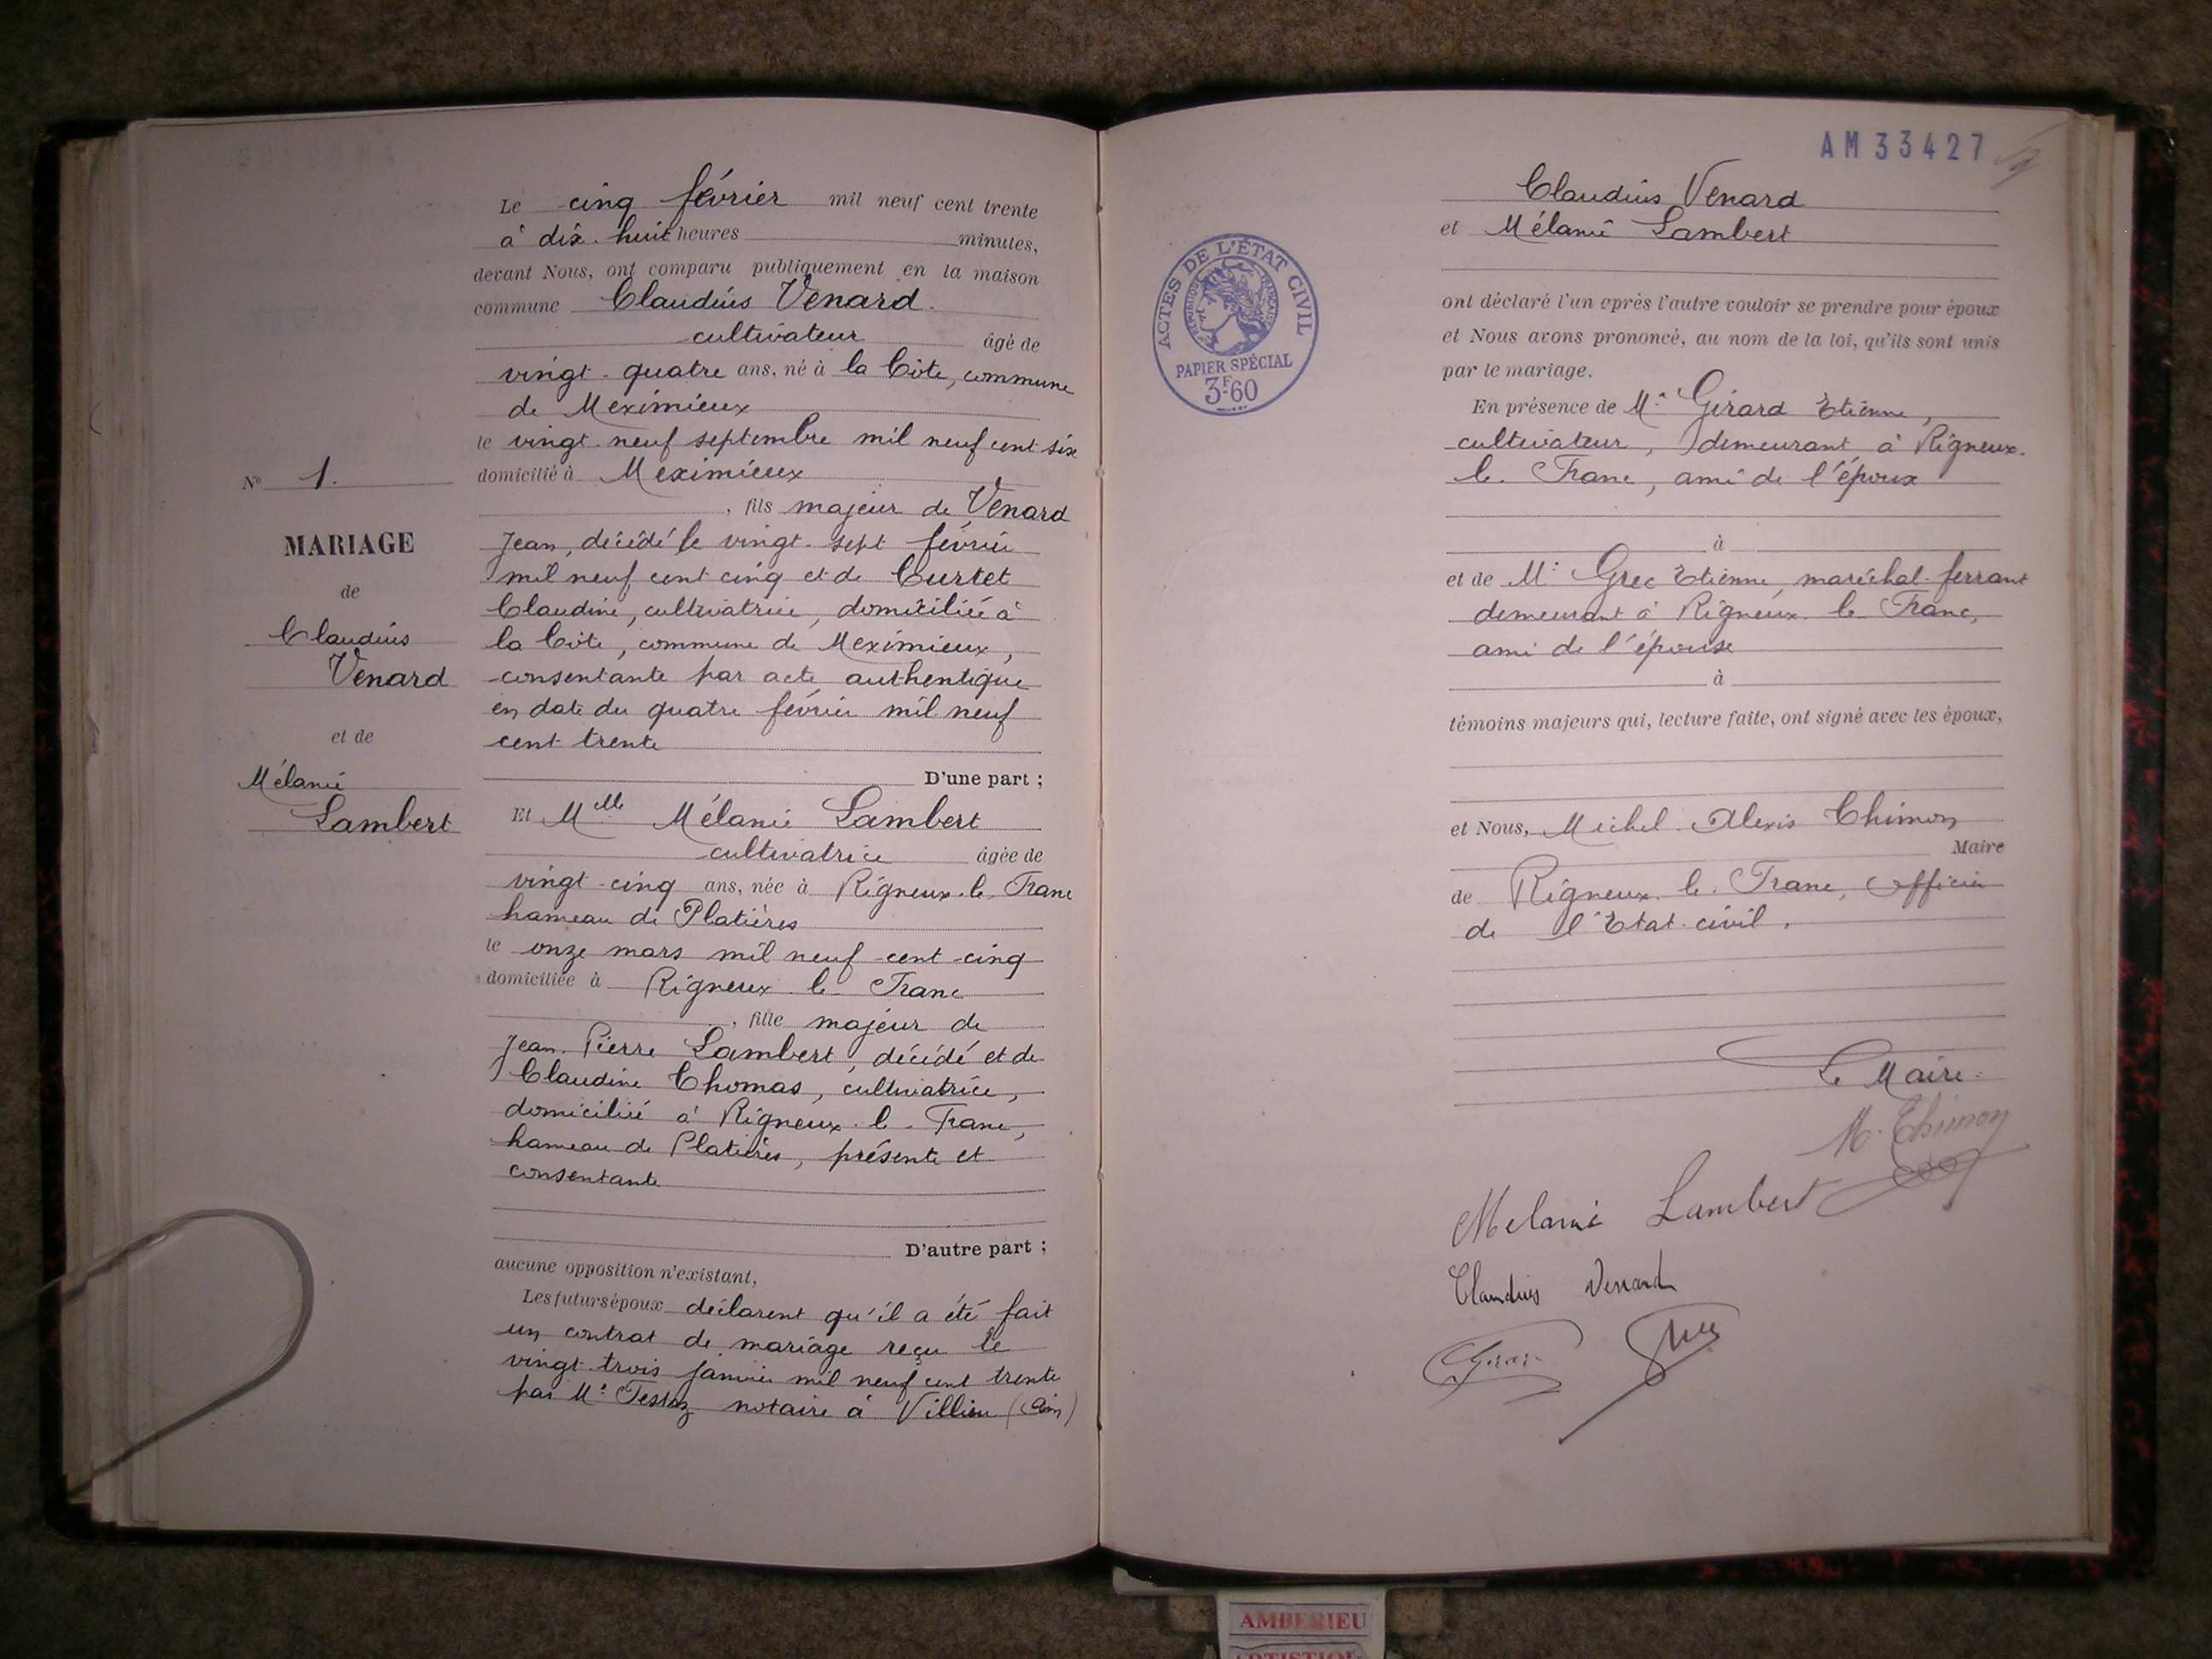 Le cinq février mil neuf cent trente
à dix-huit heures minutes,
devant Nous, ont comparu publiquement en la maison
commune Claudius Venard
cultivateur âgé de
vingt-quatre ans, né à la Côte, commune
de Meximieux
le vingt-neuf septembre mil neuf cent six
domicilié à Meximieux
, fils majeur de Venard
Jean, décédé le vingt-sept février
mil neuf cent cinq et de Curtet
Claudine, cultivatrice, domiciliée à
la Côte, commune de Meximieux,
consentante par acte authentique
en date du quatre février mil neuf
cent trente
D'une part ;
Et Mlle Mélanie Lambert
cultivatrice âgée de
vingt-cinq ans, née à Rigneux-le-Franc
hameau de Platières
le onze mars mil neuf cent cinq
domiciliée à Rigneux-le-Franc
, fille majeur de
Jean-Pierre Lambert, décédé et de
Claudine Thomas, cultivatrice,
domiciliée à Rigneux-le-Franc,
hameau de Platières, présente et
consentante
D'autre part ;
aucune opposition n'existant,
Les futurs époux déclarent qu'il a été fait
un contrat de mariage reçu le
vingt-trois janvier mil neuf cent trente
par Me notaire à Villieu (Ain)
N° 1.
MARIAGE
de
Claudius
Venard
et de
Mélanie
Lambert
AM33427
ACTES DE L'ÉTAT CIVIL
RÉPUBLIQUE FRANÇAISE
PAPIER SPÉCIAL
3F60
Claudius Venard
et Mélanie Lambert
ont déclaré l'un après l'autre vouloir se prendre pour époux
et Nous avons prononcé, au nom de la loi, qu'ils sont unis
par le mariage.
En présence de Mr Girard Etienne,
cultivateur, demeurant à Rigneux-
le-Franc, ami de l'époux
à
et de Mr Grec Etienne, maréchal-ferrant
demeurant à Rigneux-le-Franc,
ami de l'épouse
à
témoins majeurs qui, lecture faite, ont signé avec les époux,
et Nous, Michel Alexis Thimon
Maire
de Rigneux-le-Franc, officier
de l'Etat-civil.
Le Maire
M. Thimon
Melanie Lambert
Claudius Venard
Girard Grec
AMBERIEU